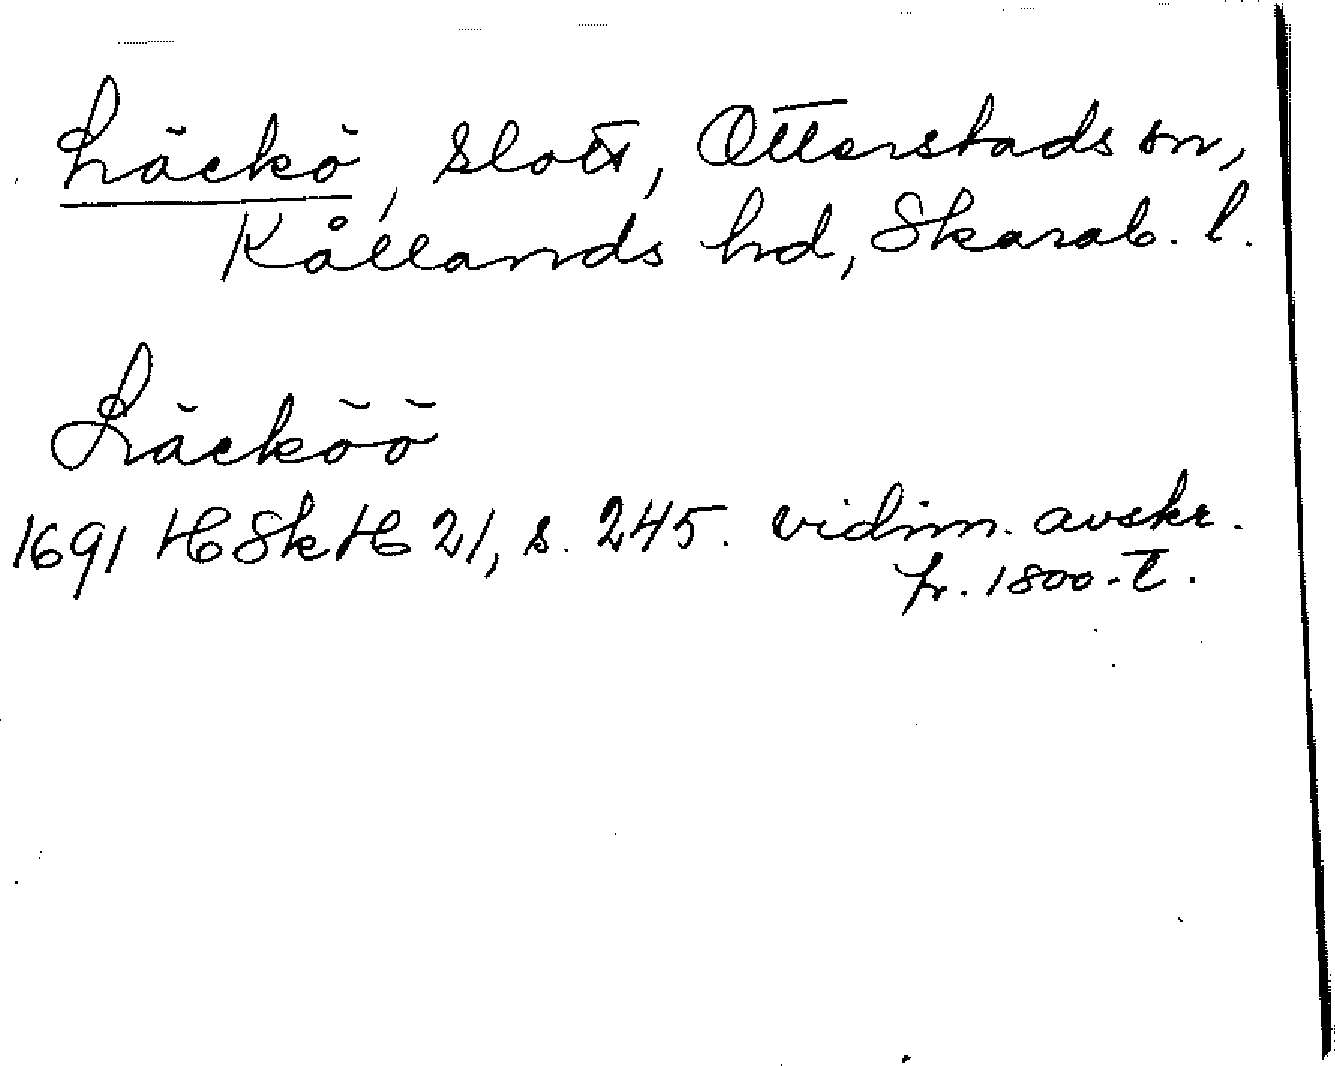 Läckö, slott, Otterstads sn,
Kållands hd, Skarab. l.
Läcköö
1691 HSkH 21, s. 245. vidim. avskr.
fr. 1800-t.